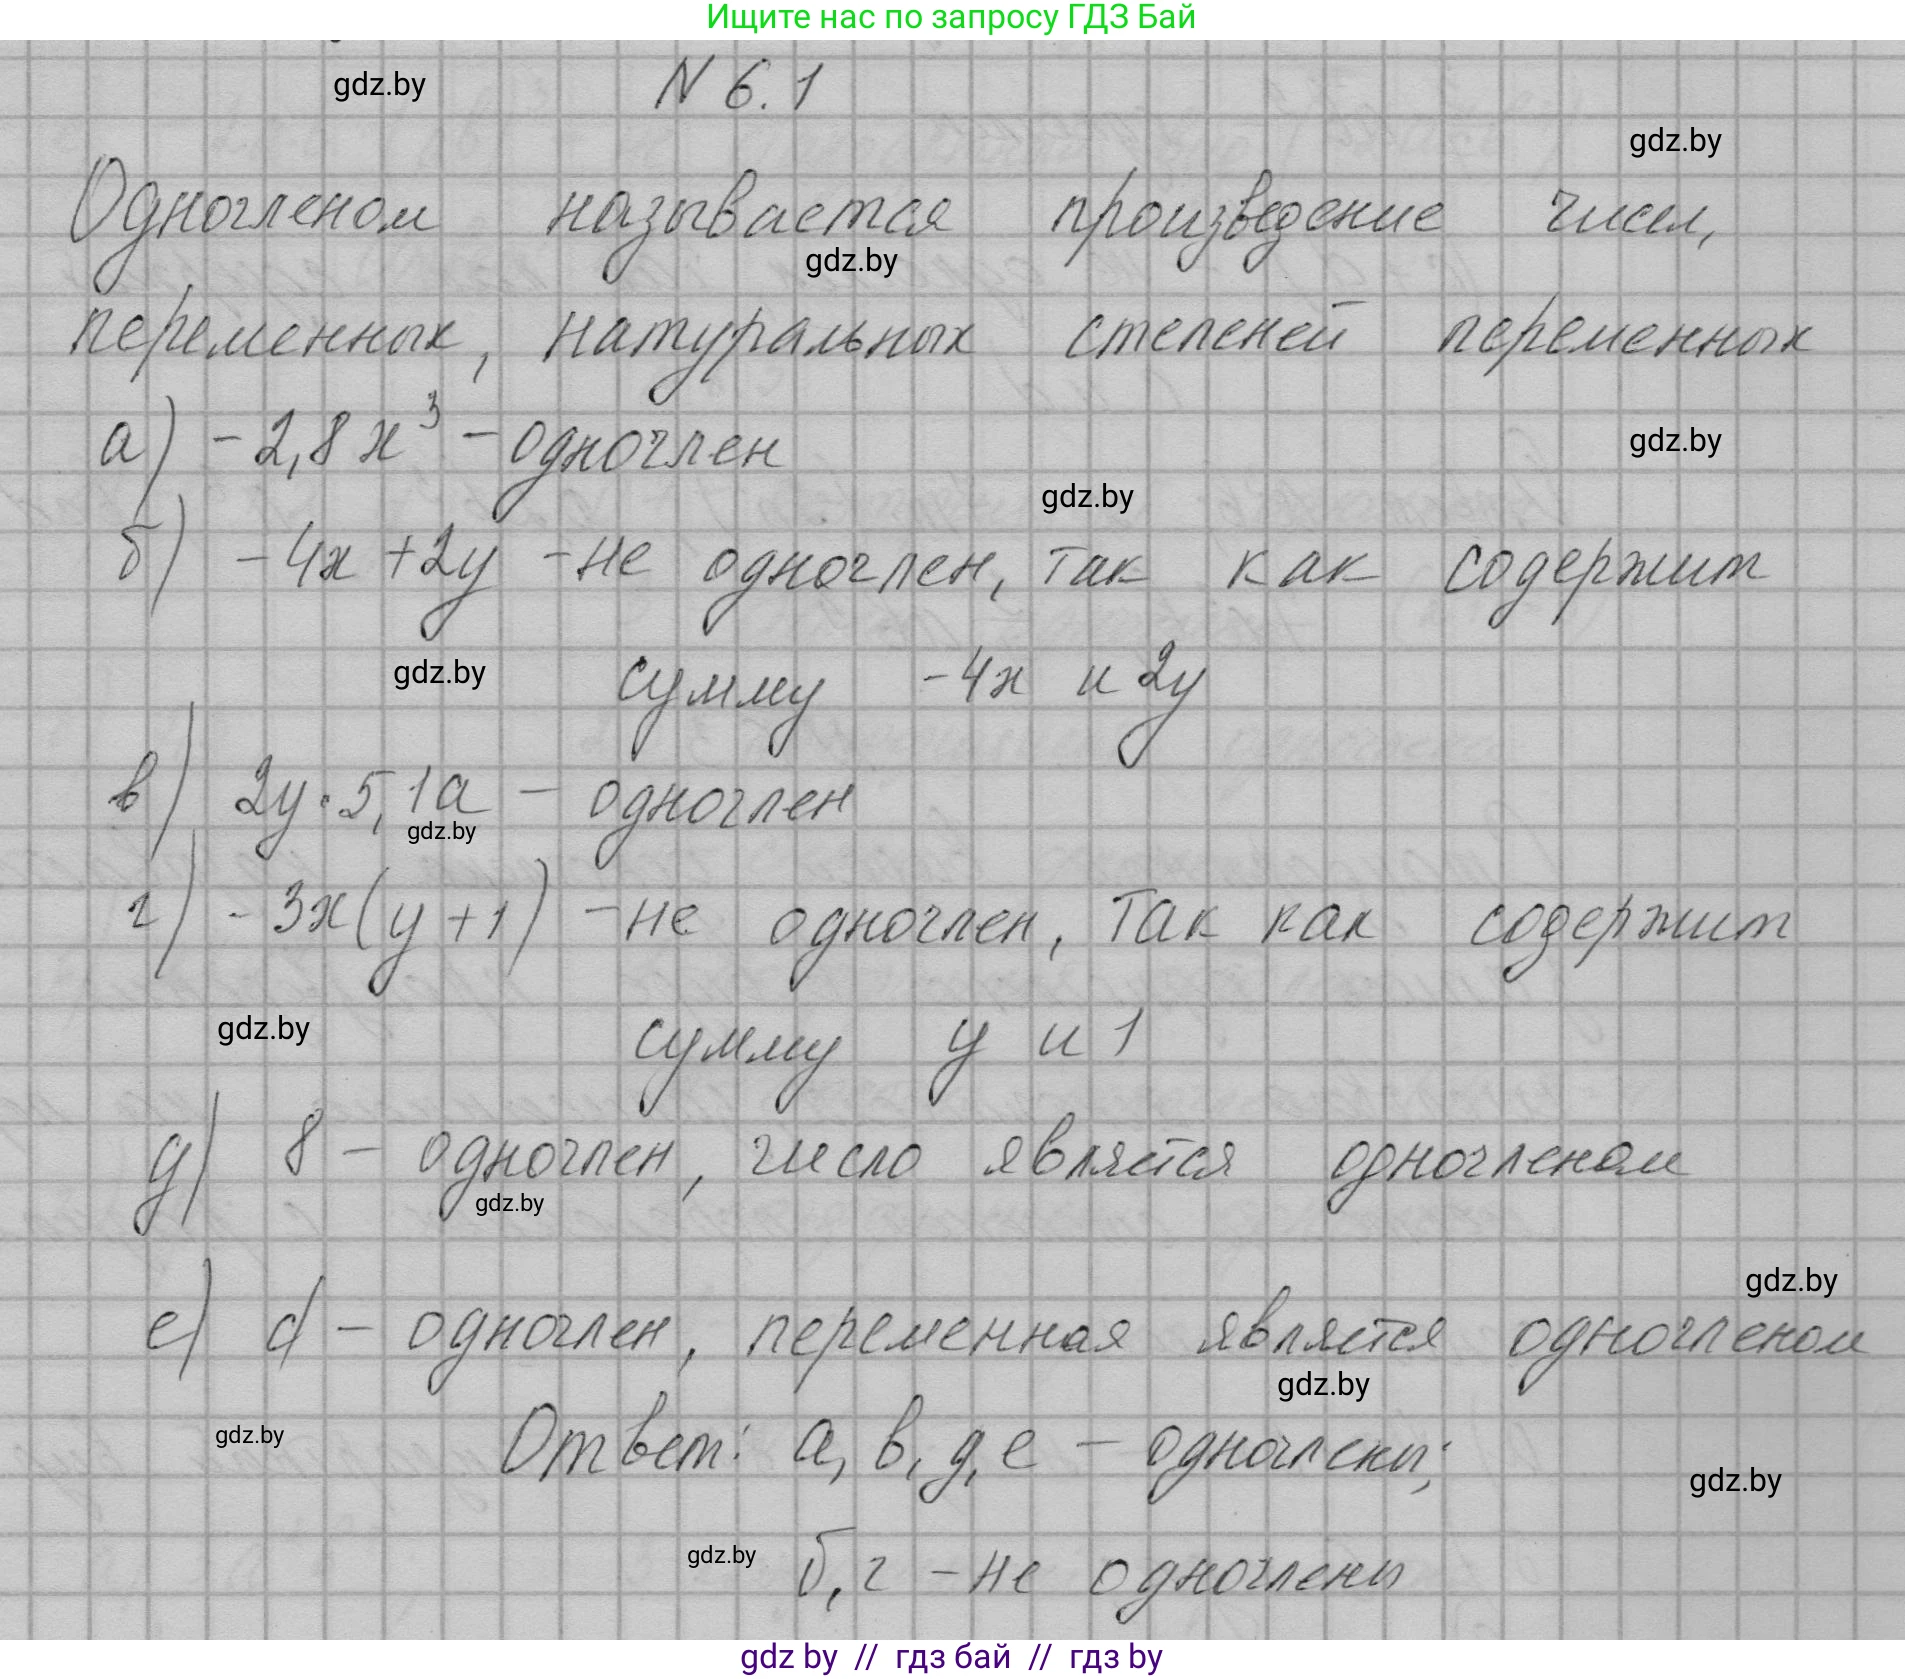 Ищите нас по запросу ГДЗ Бай
gdz.by
N 6.1
gdz.by
Одночленом называется произведение чисел,
gdz.by
переменных, натуральных степеней переменных
а) -2,8x³ - одночлен
gdz.by
gdz.by
б) -4x+2y - не одночлен, так как содержит
gdz.by
сумму -4x и 2y
в) 2y·5,1a - одночлен
gdz.by
г) -3x(y+1) - не одночлен, так как содержит
gdz.by
сумму y и 1
д) 8 - одночлен, число является одночленом
gdz.by
gdz.by
е) d - одночлен, переменная является одночленом
gdz.by
gdz.by
Ответ: а, в, д, е - одночлены;
gdz.by
gdz.by
б, г - не одночлены
gdz by // гдз бай // гдз by